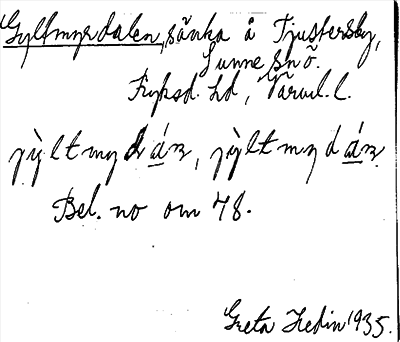 Gyltmyrdalen, sänka å Tjustersby,
Sunne sn ö.
Fryksd. hd, Värml. l.
jỳltmyrdán, jỳltmyrdán.
Bel. no om 78.
Greta Hedin 1935.